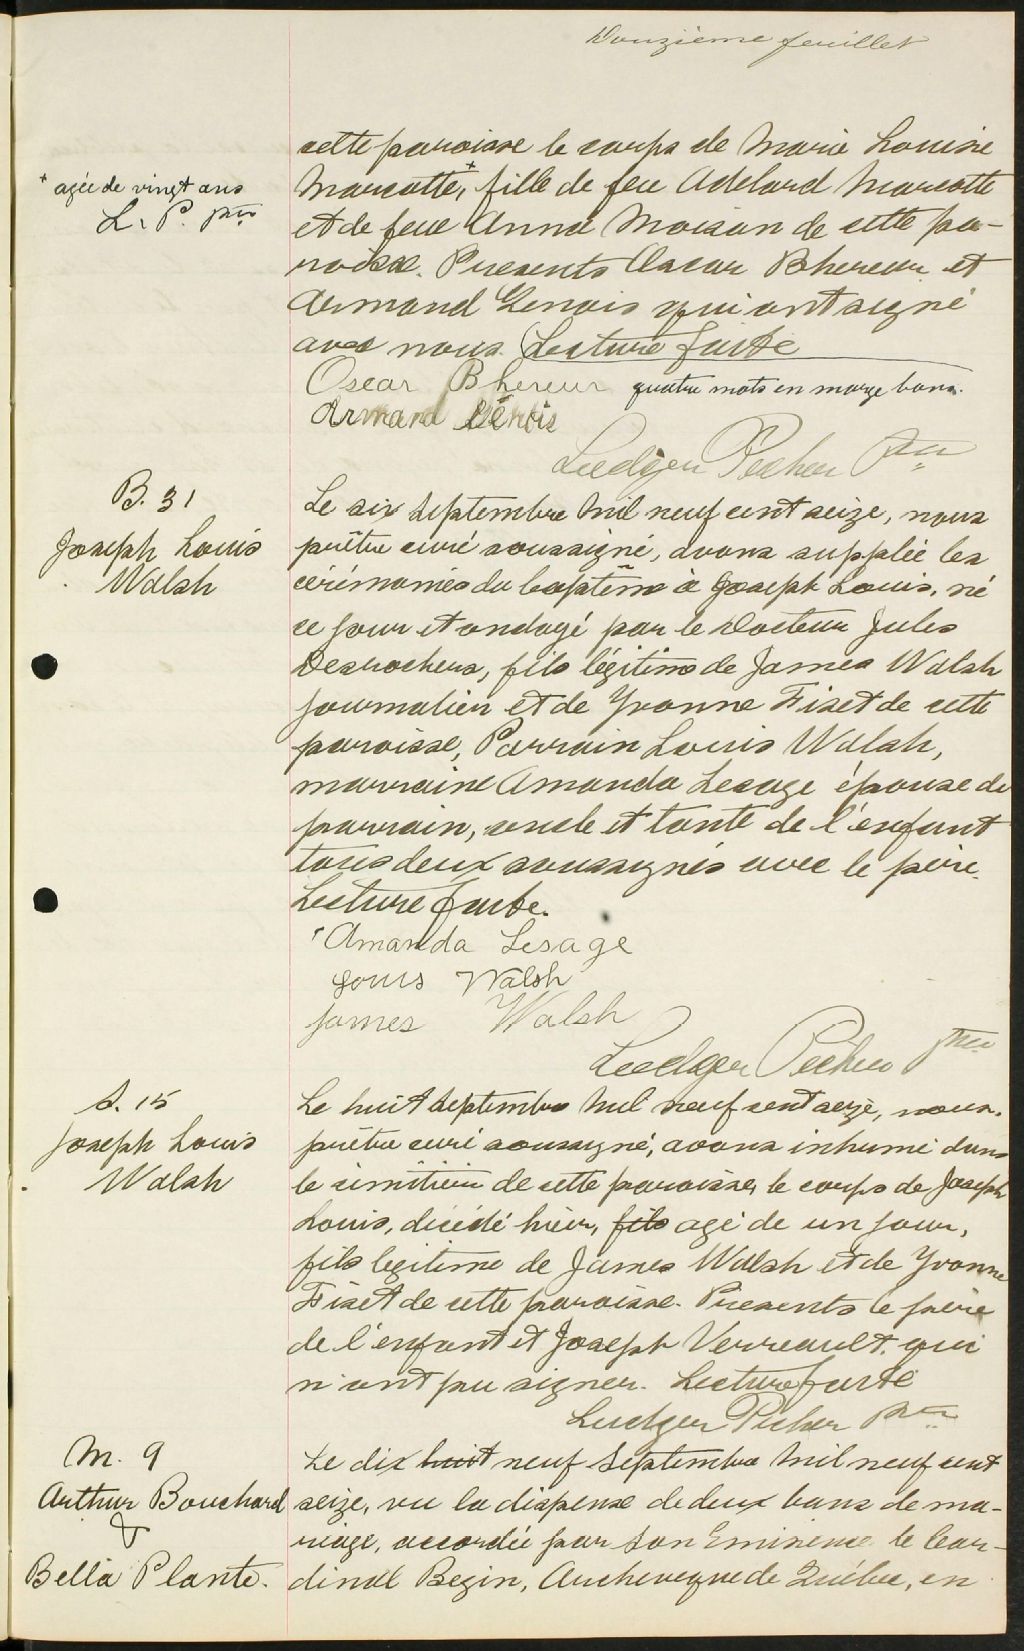 Douzième feuillet
cette paroisse le corps de Marie Louise
Marcotte,+ fille de feu Adelard Marcotte
+ agée de vingt ans
L. P. ptre
et de feue Anna Moisan de cette pa-
roisse. Presents Oscar Bhereur et
Armand Genois qui ont signé
avec nous. Lecture faite
Oscar Bhereur quatre mots en marge bons.
Armand Génois
Ludger Picher ptre
B. 31
Joseph Louis
Walsh
Le six septembre mil neuf cent seize, nous
prêtre curé soussigné, avons supplée les
cérémonies du baptême à Joseph Louis, né
ce jour et ondoyé par le Docteur Jules
Desrochers, fils légitime de James Walsh
journalier et de Yvonne Fiset de cette
paroisse, Parrain Louis Walsh,
marraine Amanda Lesage épouse du
parrain, oncle et tante de l'enfant
tous deux soussignés avec le père.
Lecture faite.
Amanda Lesage
Louis Walsh
James Walsh
Ludger Picher ptre
S. 15
Joseph Louis
Walsh
Le huit septembre mil neuf cent seize, nous.
prêtre curé soussigné, avons inhumé dans
le cimitière de cette paroisse, le corps de Joseph
Louis, décédé hier, fils agé de un jour,
fils legitime de James Walsh et de Yvonne
Fiset de cette paroisse. Présents le père
de l'enfant et Joseph Verreault. qui
n'ont pu signer. Lecture faite
Ludger Picher ptre
M. 9
Arthur Bouchard
&
Bella Plante.
Le dix huit neuf septembre mil neuf cent
seize, vu la dispense de deux bans de ma-
riage, accordée par Son Eminence le Car-
dinal Begin, Archeveque de Québec, en